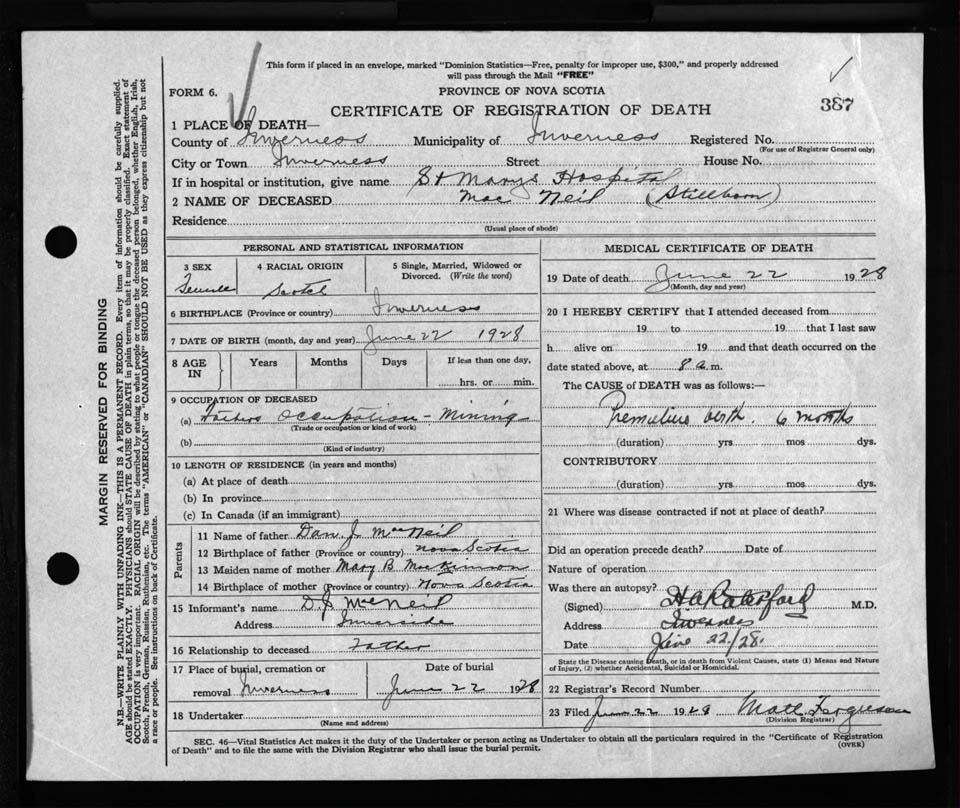 This form if placed in an envelope, marked "Dominion Statistics—Free, penalty for improper use, $300," and properly addressed
will pass through the Mail "FREE"
FORM 6.
PROVINCE OF NOVA SCOTIA
387
CERTIFICATE OF REGISTRATION OF DEATH
1 PLACE OF DEATH—
County of Inverness Municipality of Inverness Registered No.
(For use of Registrar General only)
City or Town Inverness Street House No.
If in hospital or institution, give name St Marys Hospital
2 NAME OF DECEASED Mac Neil (Stillborn)
Residence
(Usual place of abode)
PERSONAL AND STATISTICAL INFORMATION
3 SEX 4 RACIAL ORIGIN 5 Single, Married, Widowed or
Divorced. (Write the word)
Female Scotch
6 BIRTHPLACE (Province or country) Inverness
7 DATE OF BIRTH (month, day and year) June 22 1928
8 AGE IN Years Months Days If less than one day,
hrs. or min.
9 OCCUPATION OF DECEASED
(a) Fathers Occupation - Mining
(Trade or occupation or kind of work)
(b)
(Kind of industry)
10 LENGTH OF RESIDENCE (in years and months)
(a) At place of death
(b) In province
(c) In Canada (if an immigrant)
Parents
11 Name of father Dan J MacNeil
12 Birthplace of father (Province or country) Nova Scotia
13 Maiden name of mother Mary B MacKinnon
14 Birthplace of mother (Province or country) Nova Scotia
15 Informant's name D.J McNeil
Address Inverside
16 Relationship to deceased Father
17 Place of burial, cremation or Date of burial
removal Inverness June 22 1928
18 Undertaker
(Name and address)
MEDICAL CERTIFICATE OF DEATH
19 Date of death June 22 1928
(Month, day and year)
20 I HEREBY CERTIFY that I attended deceased from
19 to 19 that I last saw
h alive on 19 and that death occurred on the
date stated above, at 8 a.m.
The CAUSE of DEATH was as follows:—
Premature birth. 6 months
(duration) yrs mos dys.
CONTRIBUTORY
(duration) yrs mos dys.
21 Where was disease contracted if not at place of death?
Did an operation precede death? Date of
Nature of operation
Was there an autopsy?
(Signed) M.D.
Address Inverness
Date June 22/28
State the Disease causing Death, or in death from Violent Causes, state (1) Means and Nature
of Injury, (2) whether Accidental, Suicidal or Homicidal.
22 Registrar's Record Number
23 Filed June 22 1928 Matt Ferguson
(Division Registrar)
SEC. 46—Vital Statistics Act makes it the duty of the Undertaker or person acting as Undertaker to obtain all the particulars required in the "Certificate of Registration
of Death" and to file the same with the Division Registrar who shall issue the burial permit.
(OVER)
MARGIN RESERVED FOR BINDING
N.B.—WRITE PLAINLY WITH UNFADING INK—THIS IS A PERMANENT RECORD. Every item of information should be carefully supplied.
AGE should be stated EXACTLY. PHYSICIANS should STATE CAUSE OF DEATH in plain terms, so that it may be properly classified. Exact statement of
OCCUPATION is very important. RACIAL ORIGIN will be described by stating to what people or tongue the deceased person belonged, whether English, Irish,
Scotch, French, German, Russian, Ruthenian, etc. The terms "AMERICAN" or "CANADIAN" SHOULD NOT BE USED as they express citizenship but not
a race or people. See instructions on back of Certificate.